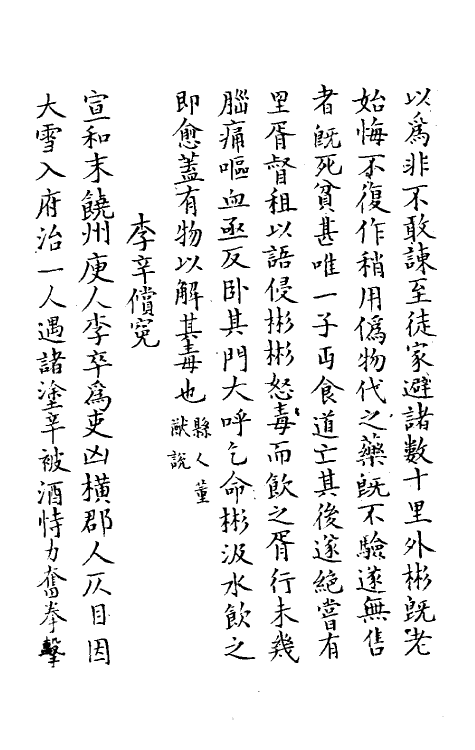 以爲非不敢諫至徒家避諸數十里外彬旣老
始悔不復作稍用僞物代之藥旣不驗遂無售
者旣死貧甚唯一子丐食道亡其後遂絶嘗有
里胥督租以語侵彬彬怒毒而飲之胥行未幾
腦痛嘔血亟反卧其門大呼乞命彬汲水飲之
即愈蓋有物以解其毒也縣人董猷説
李辛償冤
宣和末饒州庾人李卒爲吏凶横郡人仄目因
大雪入府治一人遇諸塗辛被酒恃力奮拳擊